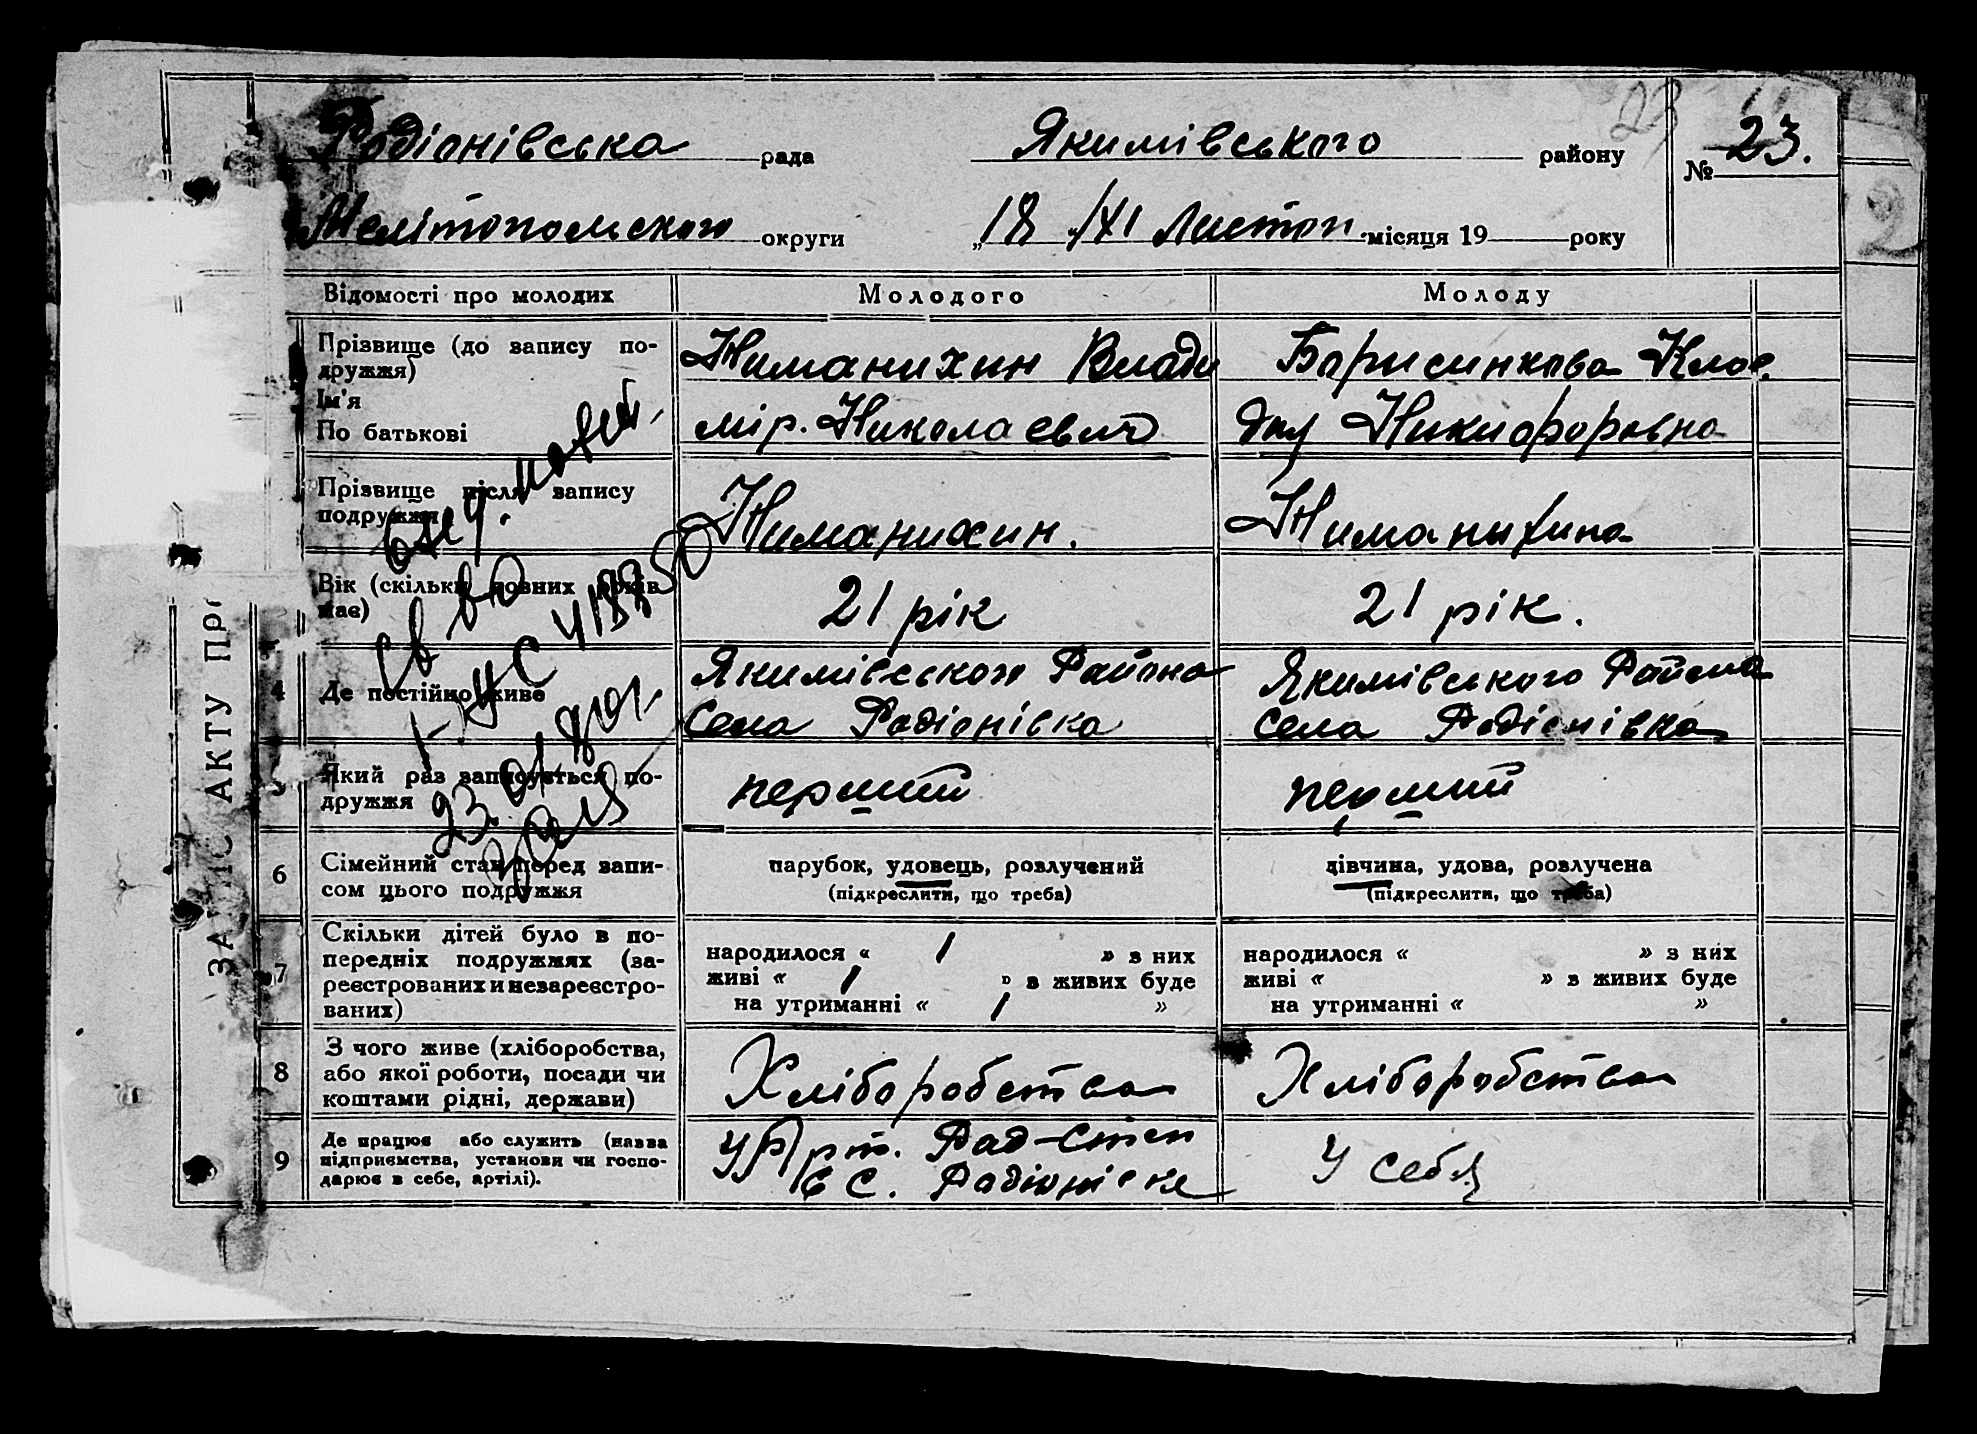 23
Родіонівська рада Якимівського району № 23.
Мелітопольського округи „18„/XI Листоп. місяця 19 року
ЗАПИС АКТУ ПРО
Відомості про молодих Молодого Молоду
Прізвище (до запису по-
дружжя)
Ім'я
По батькові
Ниманихин Влади
мір. Николаевич
Борисинкова Клав.
дия Никифоровна
Прізвище після запису
подружжя
Ниманихин.
Ниманихина
Вік (скільки повних років
має)
21 рік
21 рік.
4 Де постійно живе
Якимівського Района
села Родіонівка
Якимівського Района
села Родіонівка
5 Який раз записується по-
дружжя
перший
перший
6 Сімейний стан перед запи-
сом цього подружжя
парубок, удовець, розлучений
(підкреслити, що треба)
дівчина, удова, розлучена
(підкреслити, що треба)
7 Скільки дітей було в по-
передніх подружжях (за-
реєстрованих и незареєстро-
ваних)
народилося « 1 » з них
живі « 1 » з живих буде
на утриманні « 1 »
народилося « » з них
живі « » з живих буде
на утриманні « »
8 З чого живе (хліборобства,
або якої роботи, посади чи
коштами рідні, держави)
Хліборобства
Хліборобства
9 Де працює або служить (назва
підприємства, установи чи госпо-
дарює в себе, артілі).
У Арт. Рад-Степ
в С. Радіонівке
У себя